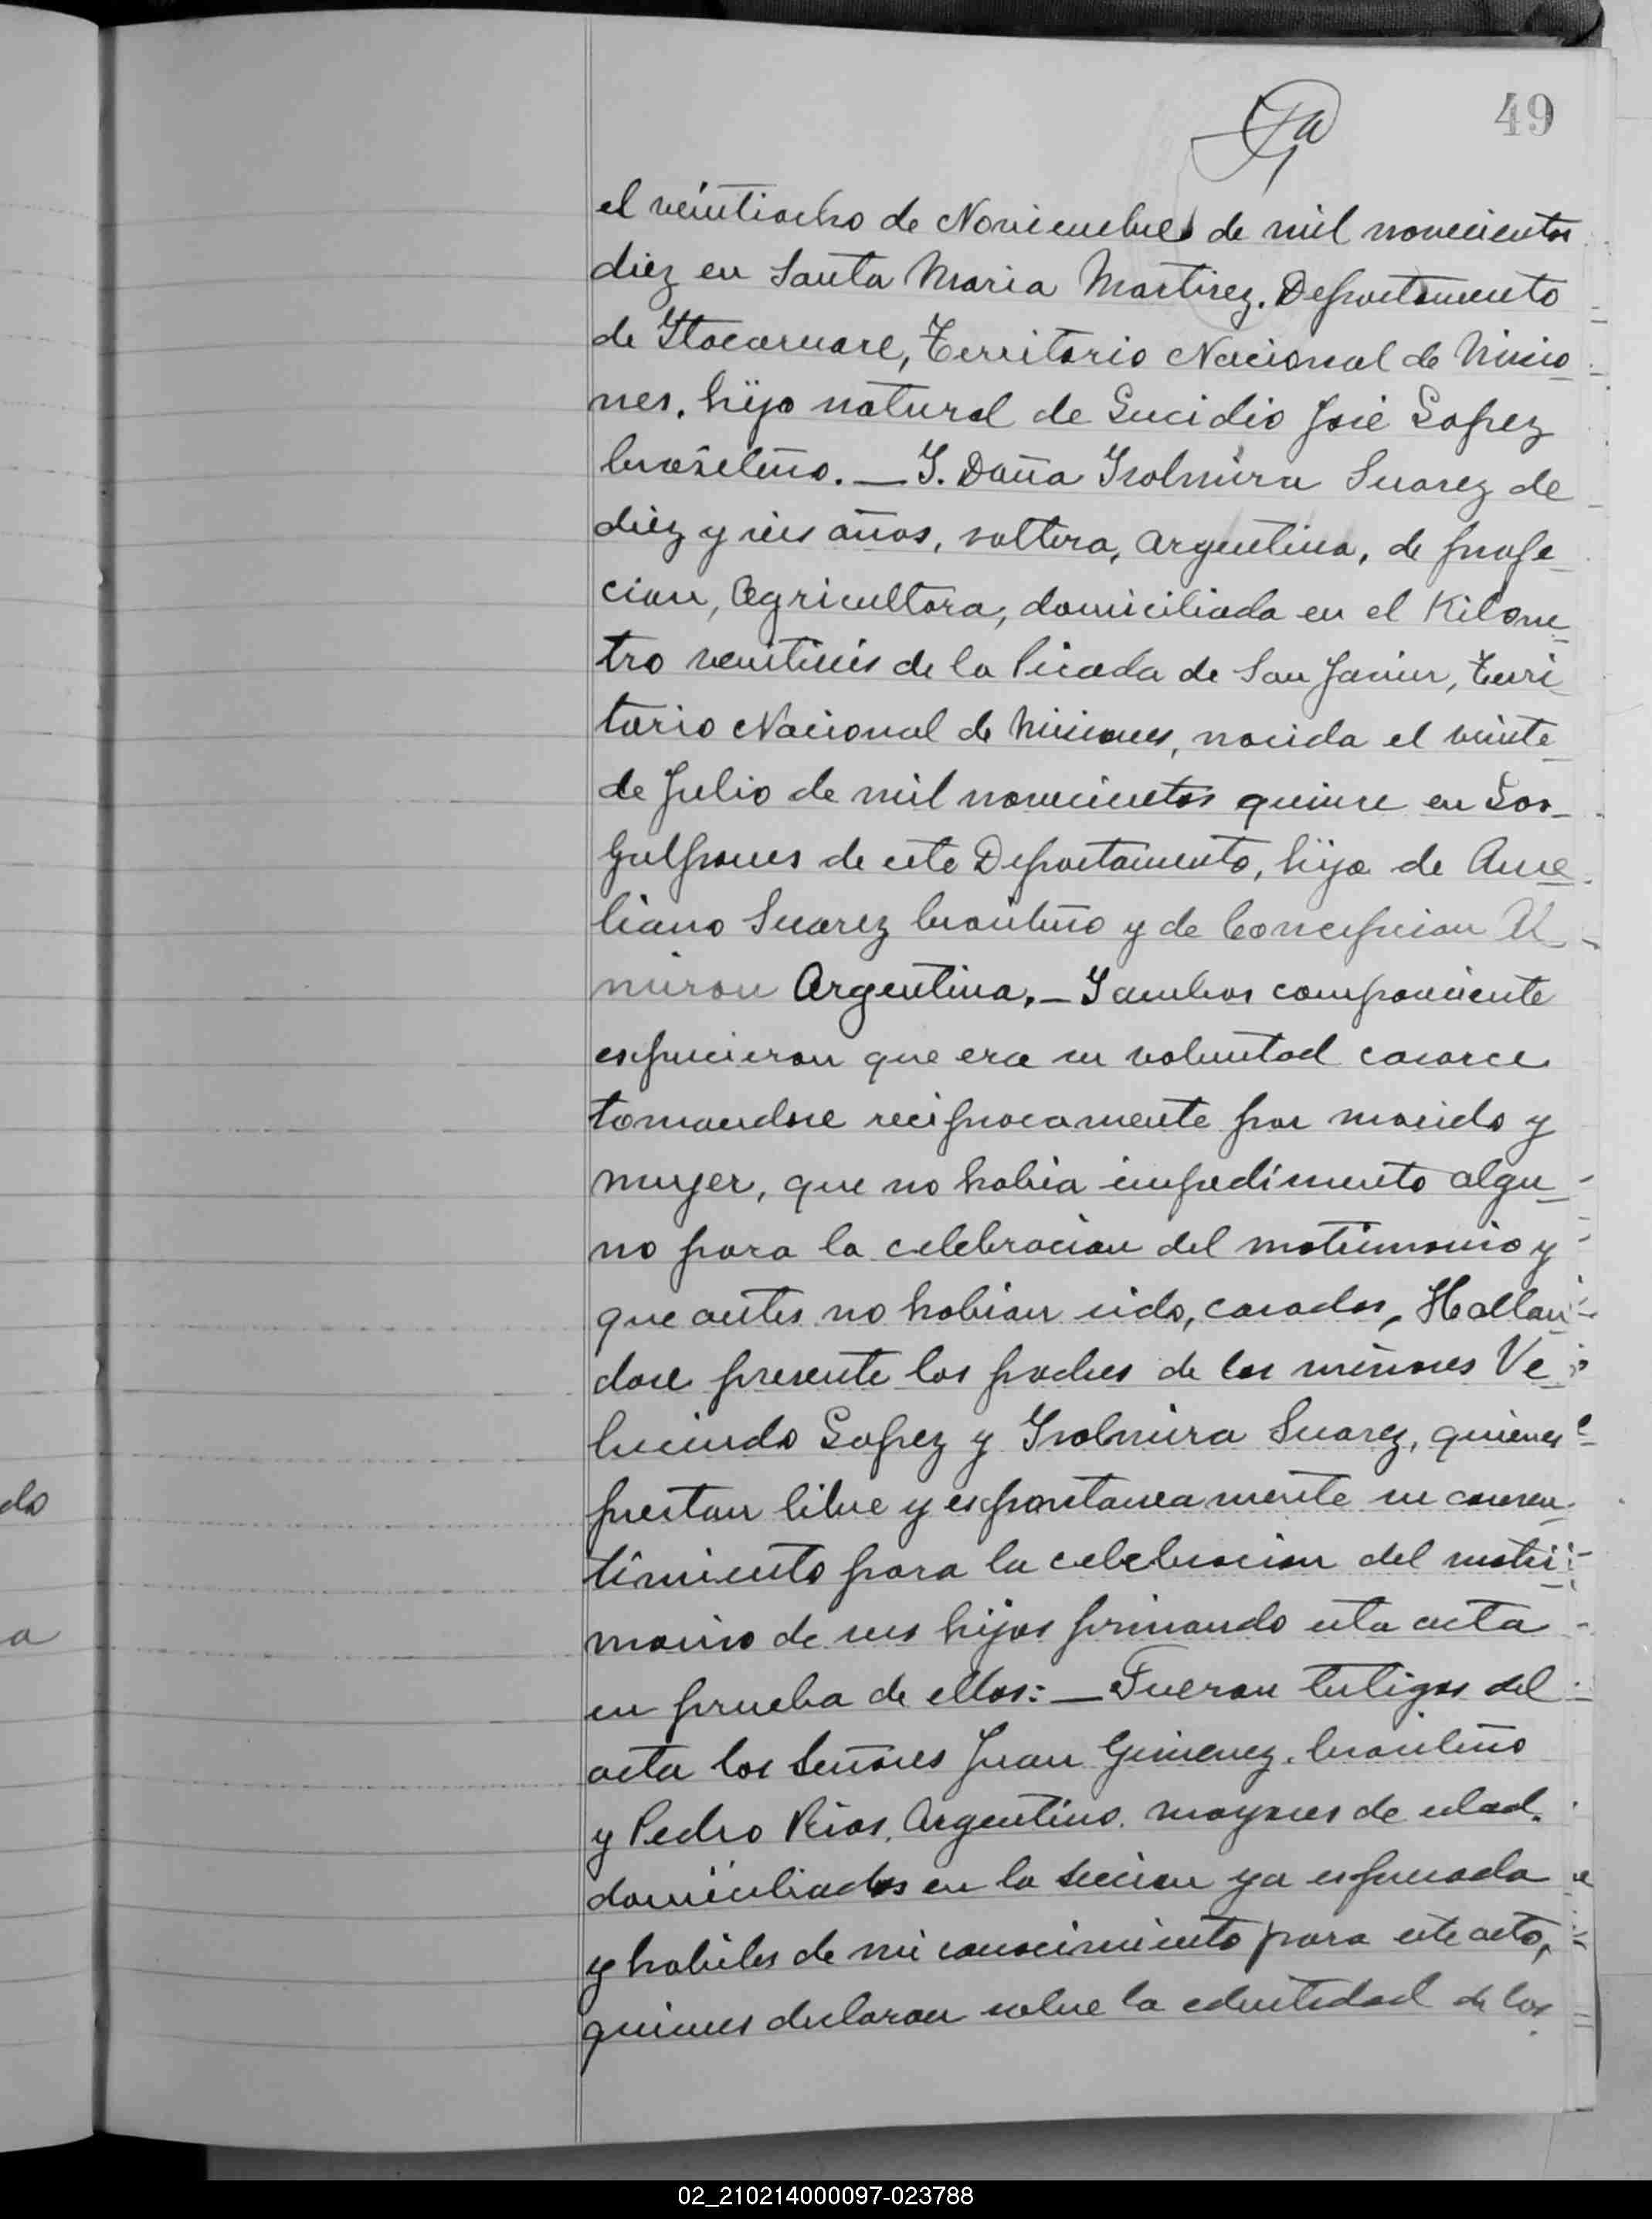 49
el veintiocho de Noviembre de mil novecientos
diez en Santa Maria Martirez. Departamento
de Ytacaruare, Territorio Nacional de Misio
nes. hijo natural de Lucidio José Lopez
brasileño. — Y. Doña Isolmira Suarez de
diez y seis años, soltera, Argentina, de profe
cion, Agricultora, domiciliada en el Kilome
tro ventiseis de la Picada de San Javier, Terri
torio Nacional de Misiones, nacida el veinte
de Julio de mil novecientos quince en Los
Galpones de este Departamento, hija de Aure
liano Suarez brasileño y de Concepcion Al
miron Argentina. — Y ambos compareciente
espucieron que era su voluntad casarce
tomandose reciprocamente por marido y
mujer, que no habia impedimento algu
no para la celebracion del matrimonio y
que antes no habian sido, casados, Hallan
dose presente los padres de los menores Ve
lucindo Lopez y Isolmira Suarez, quienes
prestan libre y espontaneamente su consen
timiento para la celebracion del matri
monio de sus hijos firmando esta acta
en prueba de ellos: — Fueron testigos del
acta los Señores Juan Gimenez. brasileño
y Pedro Rios. Argentino. mayores de edad.
domiciliados en la Seccion ya espresada
y habiles de mi conocimiento para este acto,
quienes declaran sobre la edentidad de los
do
a
02_210214000097-023788